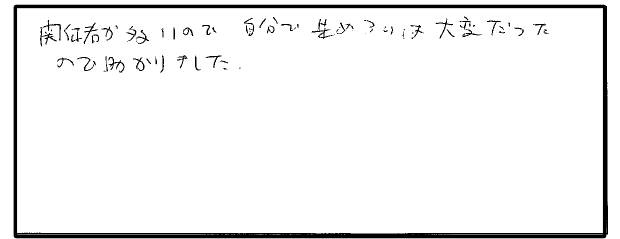 関係者が多いので 自分で集めるのは大変だった
ので助かりました.